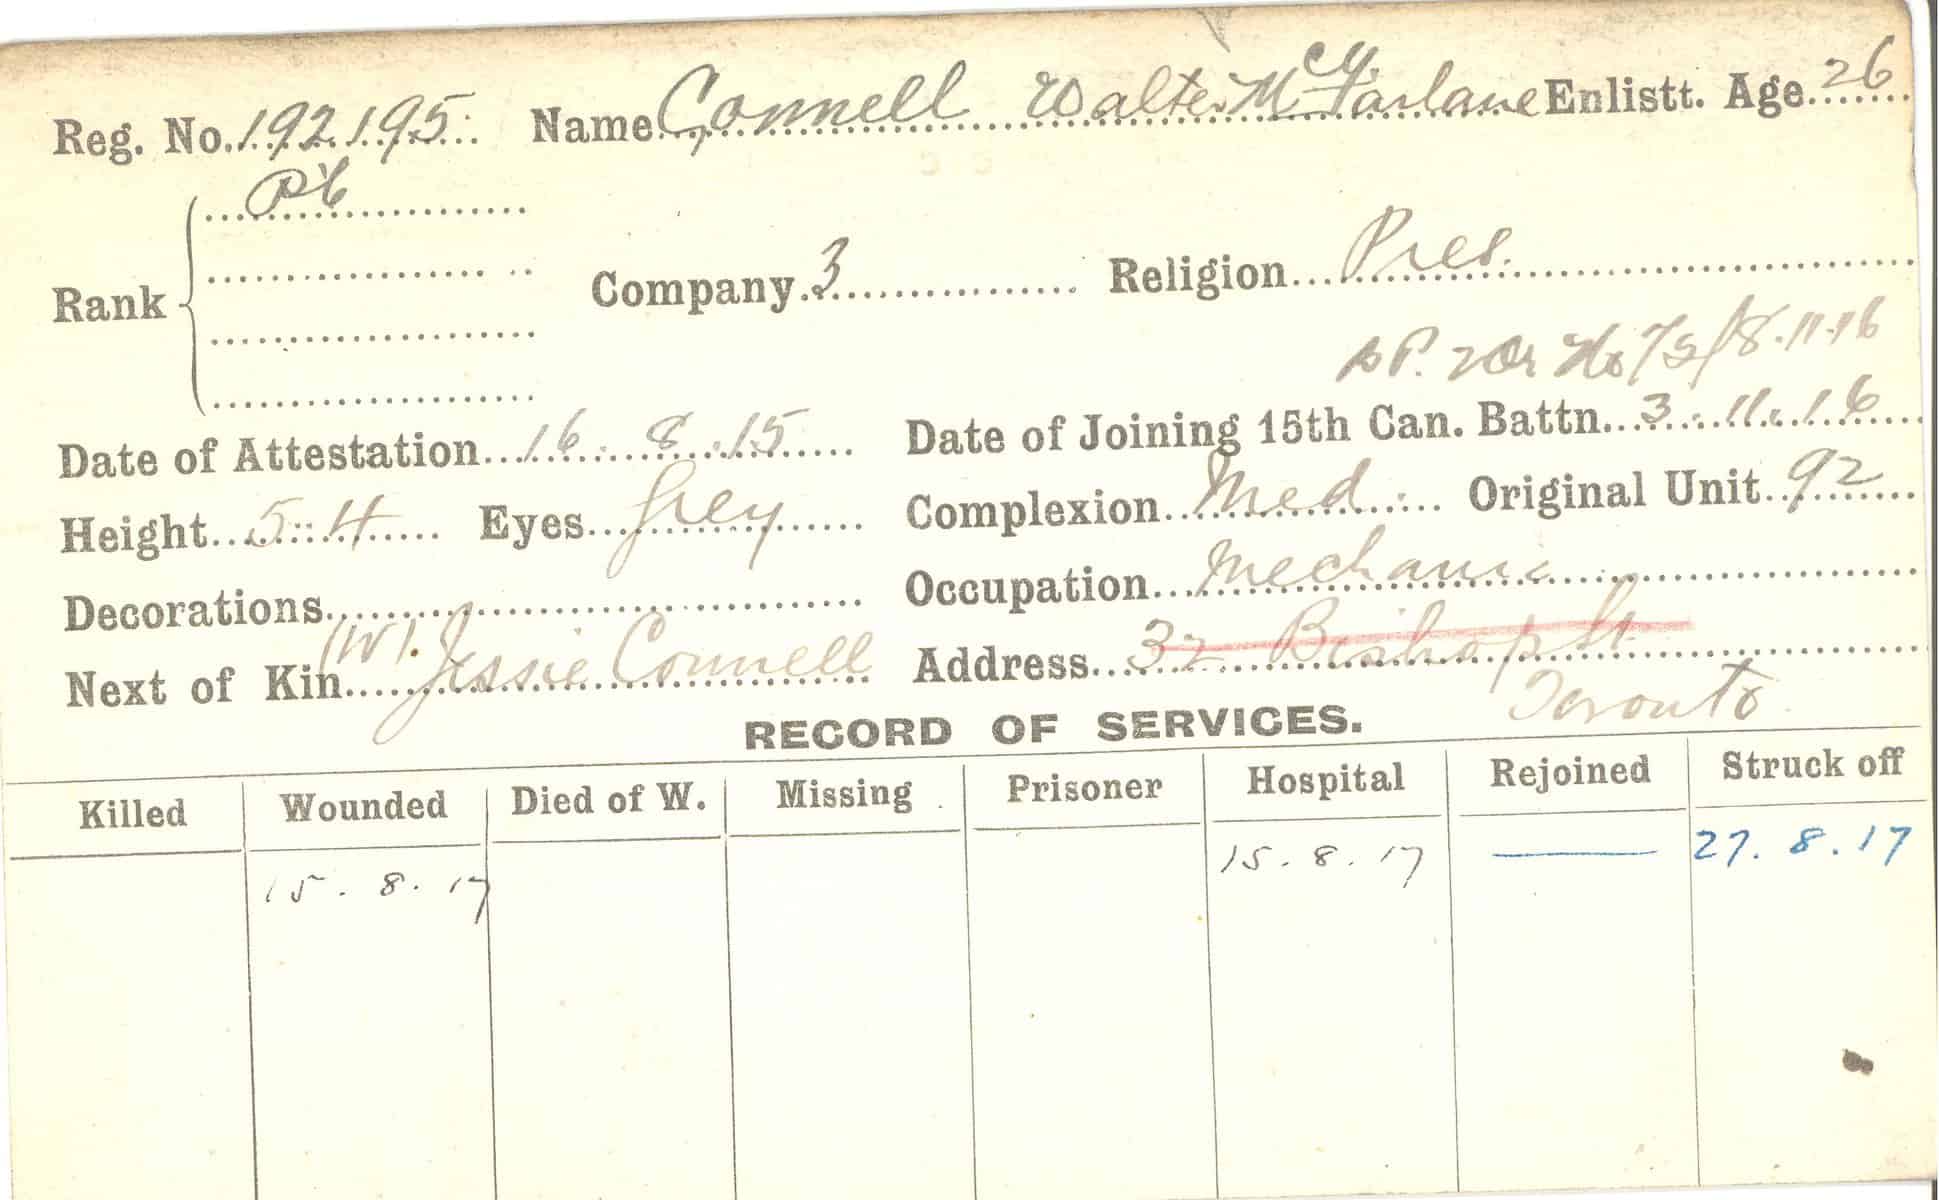 Reg. No. 192195 Name Connell Walter McFarlane Enlistt. Age 26
Pte
Rank Company 3 Religion Pres.
No 75/8.11.16
Date of Attestation 16.8.15 Date of Joining 15th Can. Battn. 3.11.16
Height 5.4 Eyes Grey Complexion Med. Original Unit 92
Decorations Occupation Mechanic
Next of Kin (W). Jessie Connell Address 32 Bishop St
Toronto
RECORD OF SERVICES.
Killed Wounded Died of W. Missing Prisoner Hospital Rejoined Struck off
15.8.17 15.8.17 — 27.8.17